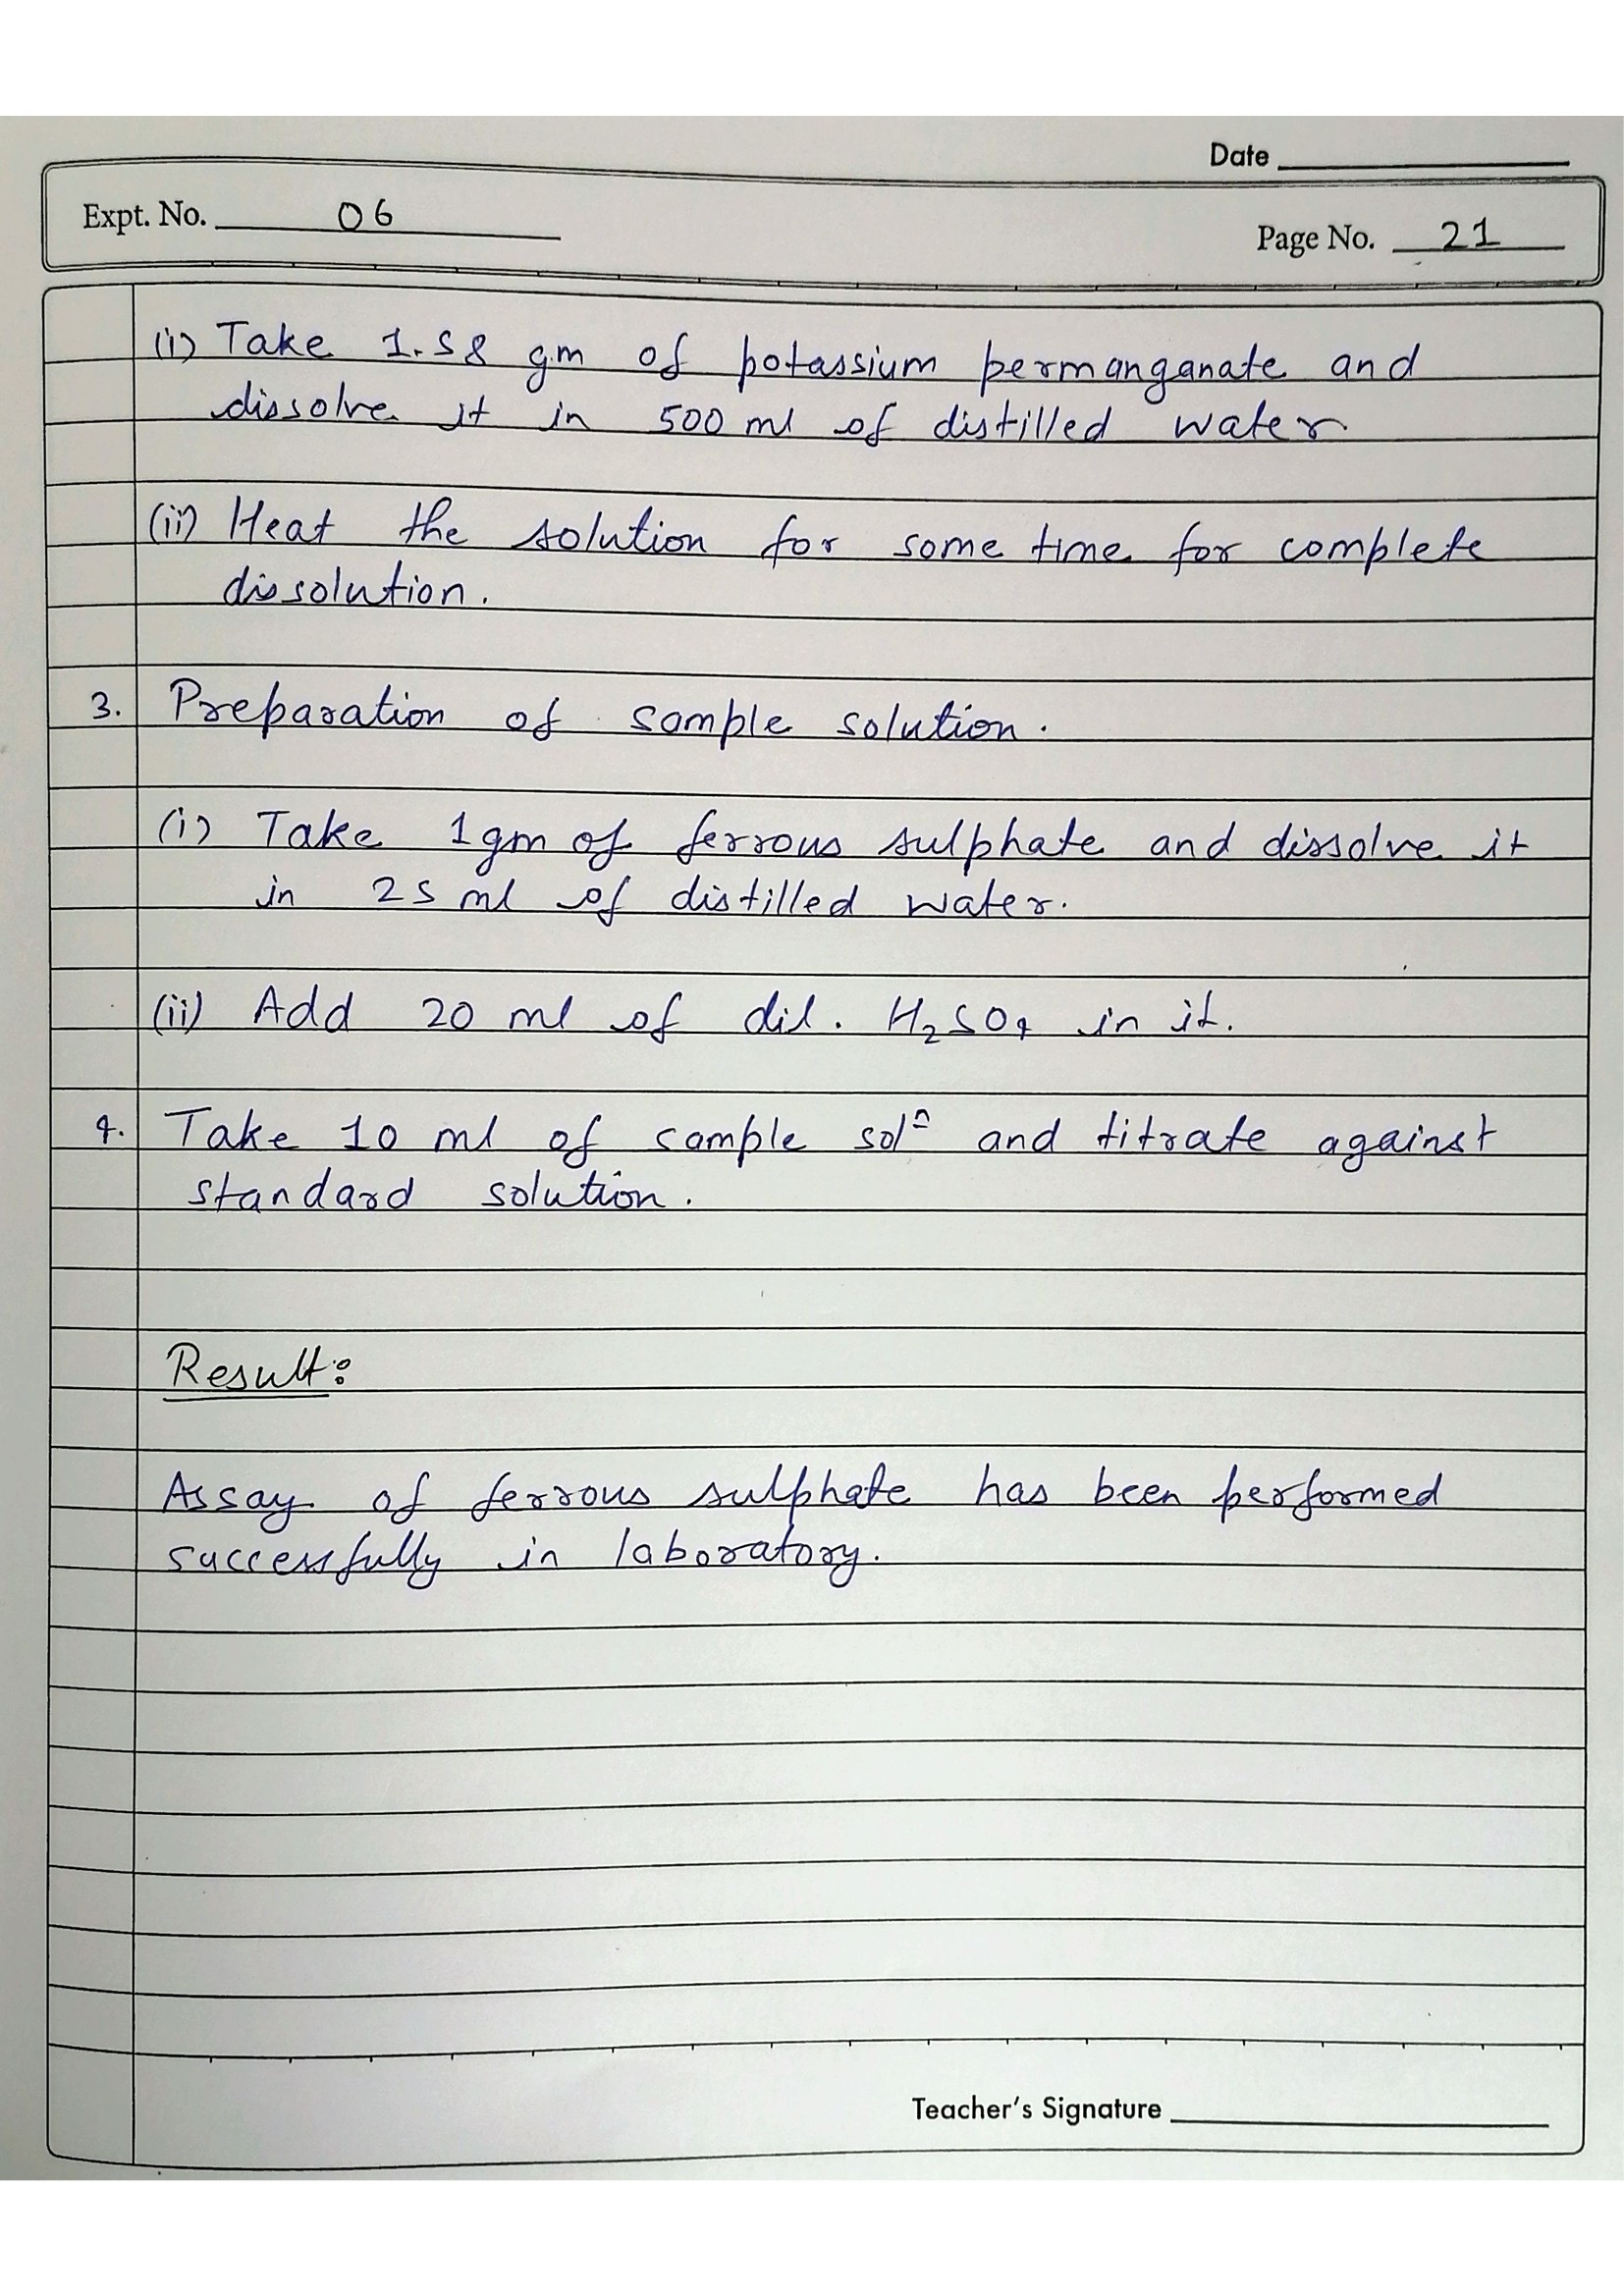 Date
Expt. No. 06
Page No. 21
(i) Take 1.58 gm of potassium permanganate and
dissolve it in 500 ml of distilled water
(ii) Heat the solution for some time for complete
dissolution.
3. Preparation of sample solution.
(i) Take 1gm of ferrous sulphate and dissolve it
in 25 ml of distilled water.
(ii) Add 20 ml of dil. H₂SO₄ in it.
4. Take 10 ml of sample solⁿ and titrate against
standard solution.
Result:
Assay of ferrous sulphate has been performed
successfully in laboratory.
Teacher's Signature